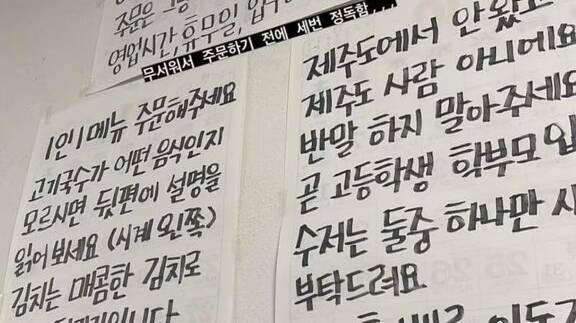 주문은
영업시간, 휴무일,
무서워서 주문하기 전에 세번 정독함...
1인 1메뉴 주문해주세요
고기국수가 어떤 음식인지
모르시면 뒷편에 설명을
읽어 보세요 (시계 왼쪽)
김치는 매콤한 김치로
입니다
제주도에서 안 왔고
제주도 사람 아니에요
반말 하지 말아주세요
곧 고등학생 학부모 입
수저는 둘중 하나만 사
부탁드려요